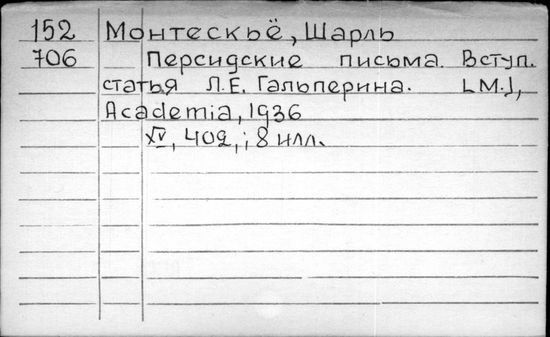 152 Монтескьё, Шарль
706 Персидские письма. Вступ.
статья Л.Е. Гальперина. [М.],
Academia, 1936
XV, 402, ; 8 илл.